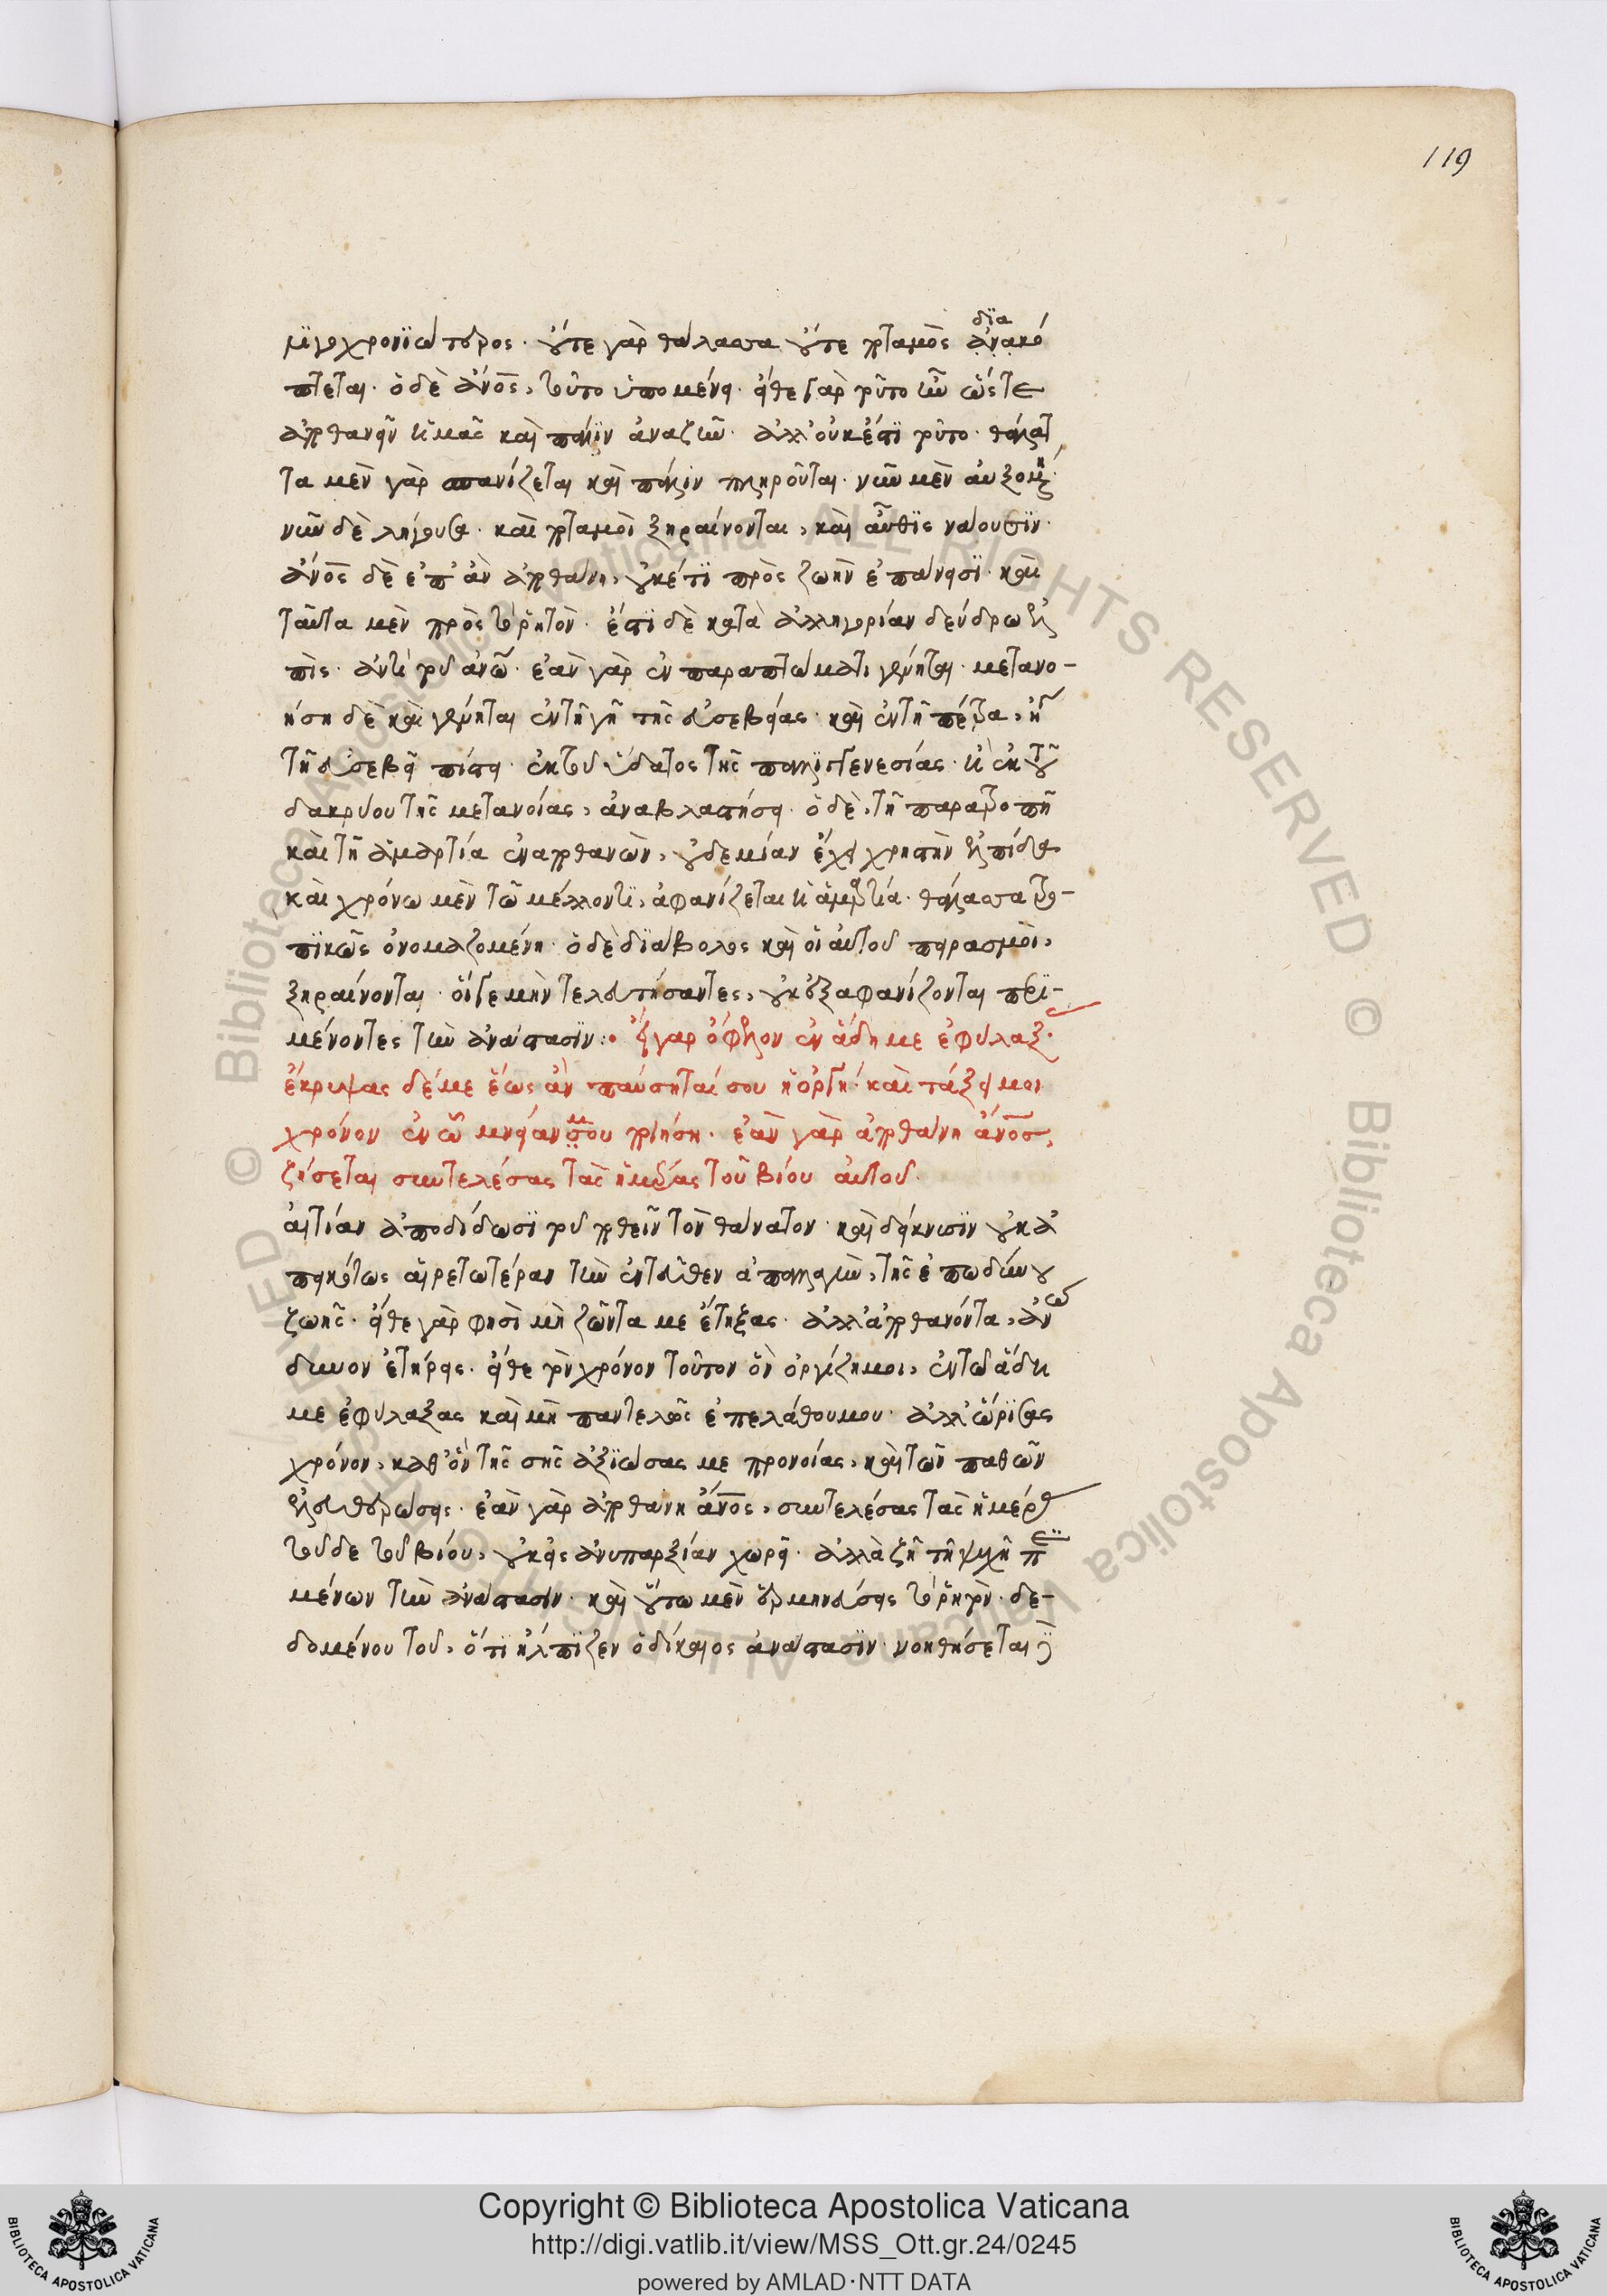 119
ὀλιγοχρονιώτερος· οὔτε γὰρ θάλασσα οὔτε ποταμὸς ἀνακό
δια
πτεται· ὁ δὲ ἄνος, τοῦτο ὑπομένει· εἴθε γὰρ τοῦτο ἦν ὥστε
ἀποθανεῖν ἡμᾶς καὶ πάλιν ἀναζῆν· ἀλλ' οὐκ ἔστι τοῦτο· θάλατ
τα μὲν γὰρ σπανίζεται καὶ πάλιν πληροῦται· νῦν μὲν αὐξομένη
νῦν δὲ λήγουσα· καὶ ποταμοὶ ξηραίνονται, καὶ αὖθις νάουσιν·
ἄνος δὲ ἐπ' ἂν ἀποθάνη, οὐκέτι πρὸς ζωὴν ἐπάνεισι· καὶ
ταῦτα μὲν πρὸς τὸ ῥητόν· ἔστι δὲ κατὰ ἀλληγορίαν δένδρω ἐλ
πὶς· ἀντὶ τοῦ ἀνω· ἐὰν γὰρ ἐν παραπτώματι γένηται· μετανο-
ήση δὲ καὶ γένηται ἐν τῆ γῆ τῆς εὐσεβείας· καὶ ἐν τῆ πέτρα, ἢ
τῆ εὐσεβεῖ πίστει· ἐκ τοῦ ὕδατος τῆς παλιγγενεσίας· ἢ ἐκ τοῦ
δακρύου τῆς μετανοίας, ἀναβλαστήσει· ὁ δὲ, τῆ παρατροπῆ
καὶ τῆ ἁμαρτία ἐναποθανὼν, οὐδεμίαν ἔχει χρηστὴν ἐλπίδα
καὶ χρόνω μὲν τῶ μέλλοντι, ἀφανίζεται ἡ ἁμαρτία· θάλασσα τρο-
πικῶς ὀνομαζομένη· ὁ δὲ διάβολος καὶ οἱ αὐτοῦ πειρασμοὶ,
ξηραίνονται· οἵ γε μὴν τελευτήσαντες, οὐκ ἐξαφανίζονται περι-
μένοντες τὴν ἀνάστασιν:· εἰ γὰρ ὄφελον ἐν ἅδη με ἐφύλαξας·
ἔκρυψας δέ με ἕως ἂν παύσηταί σου ἡ ὀργή· καὶ τάξει μοι
χρόνον ἐν ὧ μνείαν σου ποιήση· ἐὰν γὰρ ἀποθάνη ἄνος,
μ
ζήσεται συντελέσας τὰς ἡμέρας τοῦ βίου αὐτοῦ·
αἰτίαν ἀποδίδωσι τοῦ ποθεῖν τὸν θάνατον· καὶ δείκνυσιν οὐκ ἀ
πεικότως αἱρετωτέραν τὴν ἐντεῦθεν ἀπαλλαγὴν, τῆς ἐπωδύνου
ζωῆς· εἴθε γάρ φησὶ μὴ ζῶντα με ἔτηξας· ἀλλ' ἀποθανόντα, ἀνώ
δυνον ἐτήρεις· εἴθε τὸν χρόνον τοῦτον ὃν ὀργίζη μοι, ἐν τῶ ἅδη
με ἐφύλαξας καὶ μὴ παντελῶς ἐπελάθου μου· ἀλλ' ὥρισας
χρόνον, καθ' ὃν τῆς σῆς ἀξιώσας με προνοίας, καὶ τῶν παθῶν
ἐλευθερώσεις· ἐὰν γὰρ ἀποθάνη ἄνος, συντελέσας τὰς ἡμέρας
τοῦδε τοῦ βίου, οὐκ εἰς ἀνυπαρξίαν χωρεῖ· ἀλλὰ ζῆ τῆ ψυχῆ περι
μένων τὴν ἀνάστασιν· καὶ οὕτω μὲν ἑρμηνεύσεις τὸ ῥητὸν· δε-
δομένου του, ὅτι ἤλπιζεν ὁ δίκαιος ἀνάστασιν· νοηθήσεται
Copyright © Biblioteca Apostolica Vaticana
http://digi.vatlib.it/view/MSS_Ott.gr.24/0245
powered by AMLAD·NTT DATA